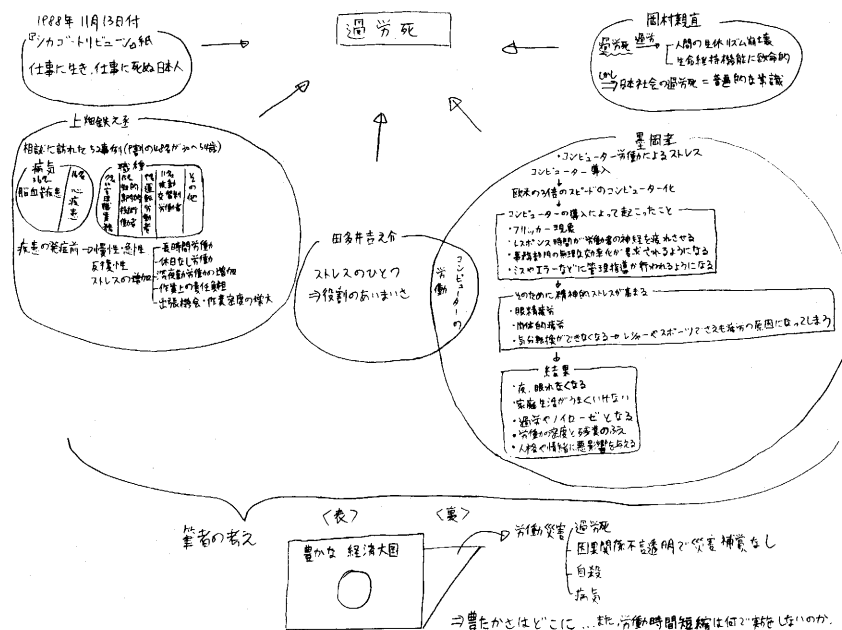 1988年 11月13日付
『シカゴ・トリビューン』紙
仕事に生き、仕事に死ぬ日本人
過労死
岡村親宜
過労死 過労
人間の生体リズム崩壊
生命維持機能に致命的
しかし
⇒日本社会の過労死=普遍的な常識
上畑鉄之丞
相談に訪れた52事例
病気
脳血管疾患
心疾患
職種
その他
疾患の発症前→
慢性・急性
反復性
ストレスの増加
長時間労働
休日なし労働
深夜勤労働の増加
作業上の責任負担
出張機会・作業密度の増大
田多井吉之介
ストレスのひとつ
⇒役割のあいまいさ
コンピューターの
労働
墨岡孝
・コンピューター労働によるストレス
コンピューター導入
欧米の3倍のスピードのコンピューター化
コンピューターの導入によって起こったこと
・フリッカー現象
・レスポンス時間が労働者の神経を疲れさせる
・事務部門の無理な効率化が要求されるようになる
・ミスやエラーなどに管理指導が行われるようになる
そのために精神的ストレスが高まる
・眼精疲労
・肉体的疲労
・気分転換ができなくなる→レジャーやスポーツでさえも疲労の原因になってしまう
結果
・夜、眠れなくなる
・家庭生活がうまくいけない
・過労やノイローゼとなる
・労働の密度と残業のふえ
・人格や情緒に悪影響を与える
筆者の考え
〈表〉
〈裏〉
豊かな 経済大国
労働災害
過労死
因果関係不透明で災害補償なし
自殺
病気
⇒豊たかさはどこに…また、労働時間短縮は何で実施をしないのか.